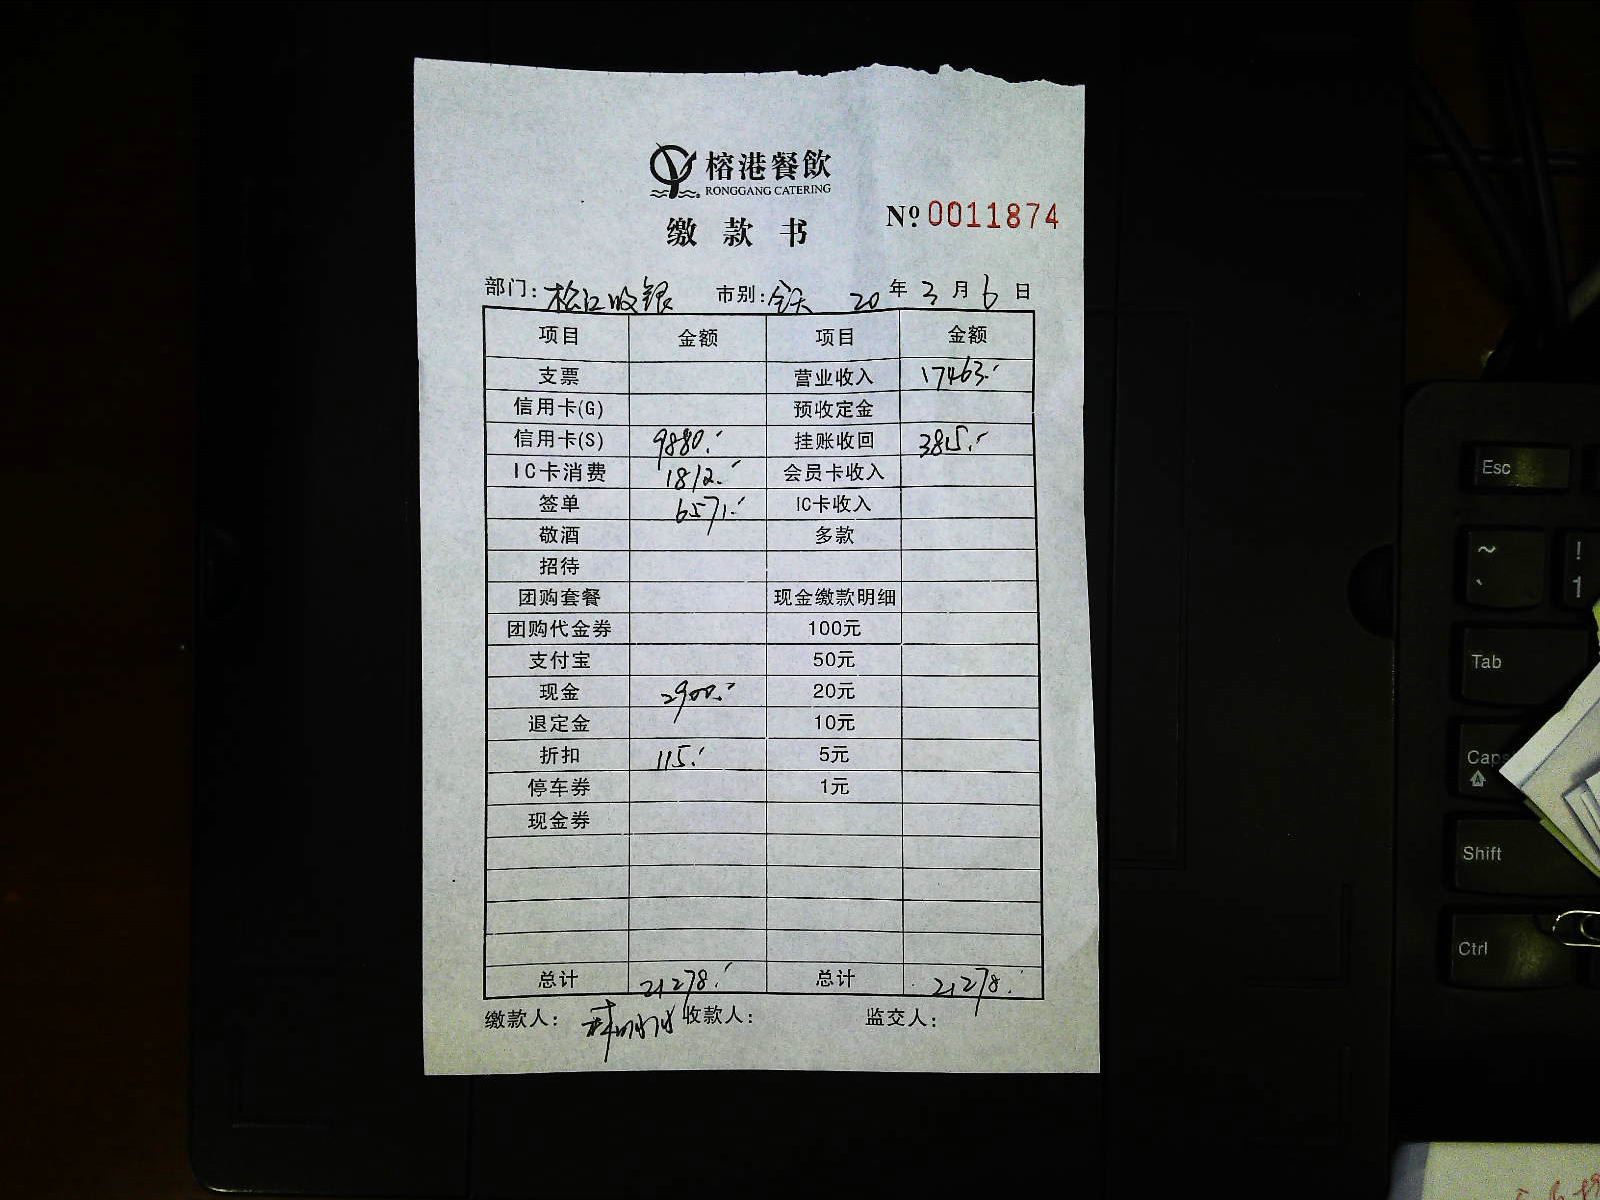 榕港餐飲
RONGGANG CATERING
缴款书
№ 0011874
部门: 松江收银 市别: 全天 20年3月6日
项目 金额 项目 金额
支票 营业收入 17463.-
信用卡(G) 预收定金
信用卡(S) 9880.- 挂账收回 3815.-
IC卡消费 1812.- 会员卡收入
签单 6571.- IC卡收入
敬酒 多款
招待
团购套餐 现金缴款明细
团购代金券 100元
支付宝 50元
现金 2900.- 20元
退定金 10元
折扣 115.- 5元
停车券 1元
现金券
总计 21278.- 总计 21278.-
缴款人: 收款人: 监交人:
Esc
~ !
` 1
Tab
Caps
Shift
Ctrl